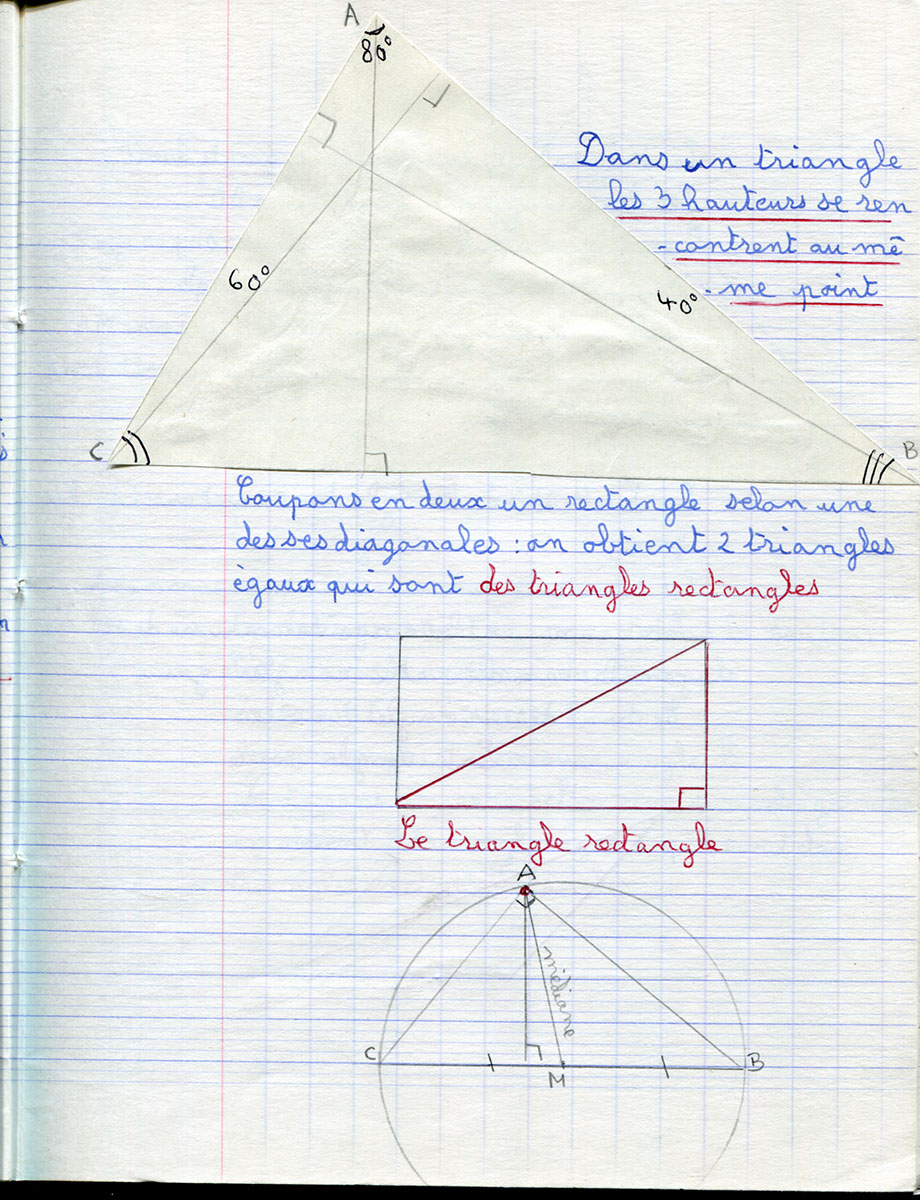 A
80°
Dans un triangle
les 3 hauteurs se ren
-contrent au mê
-me point
60°
40°
C
B
Coupons en deux un rectangle selon une
des ses diagonales : on obtient 2 triangles
égaux qui sont des triangles rectangles
Le triangle rectangle
A
médiane
C
M
B